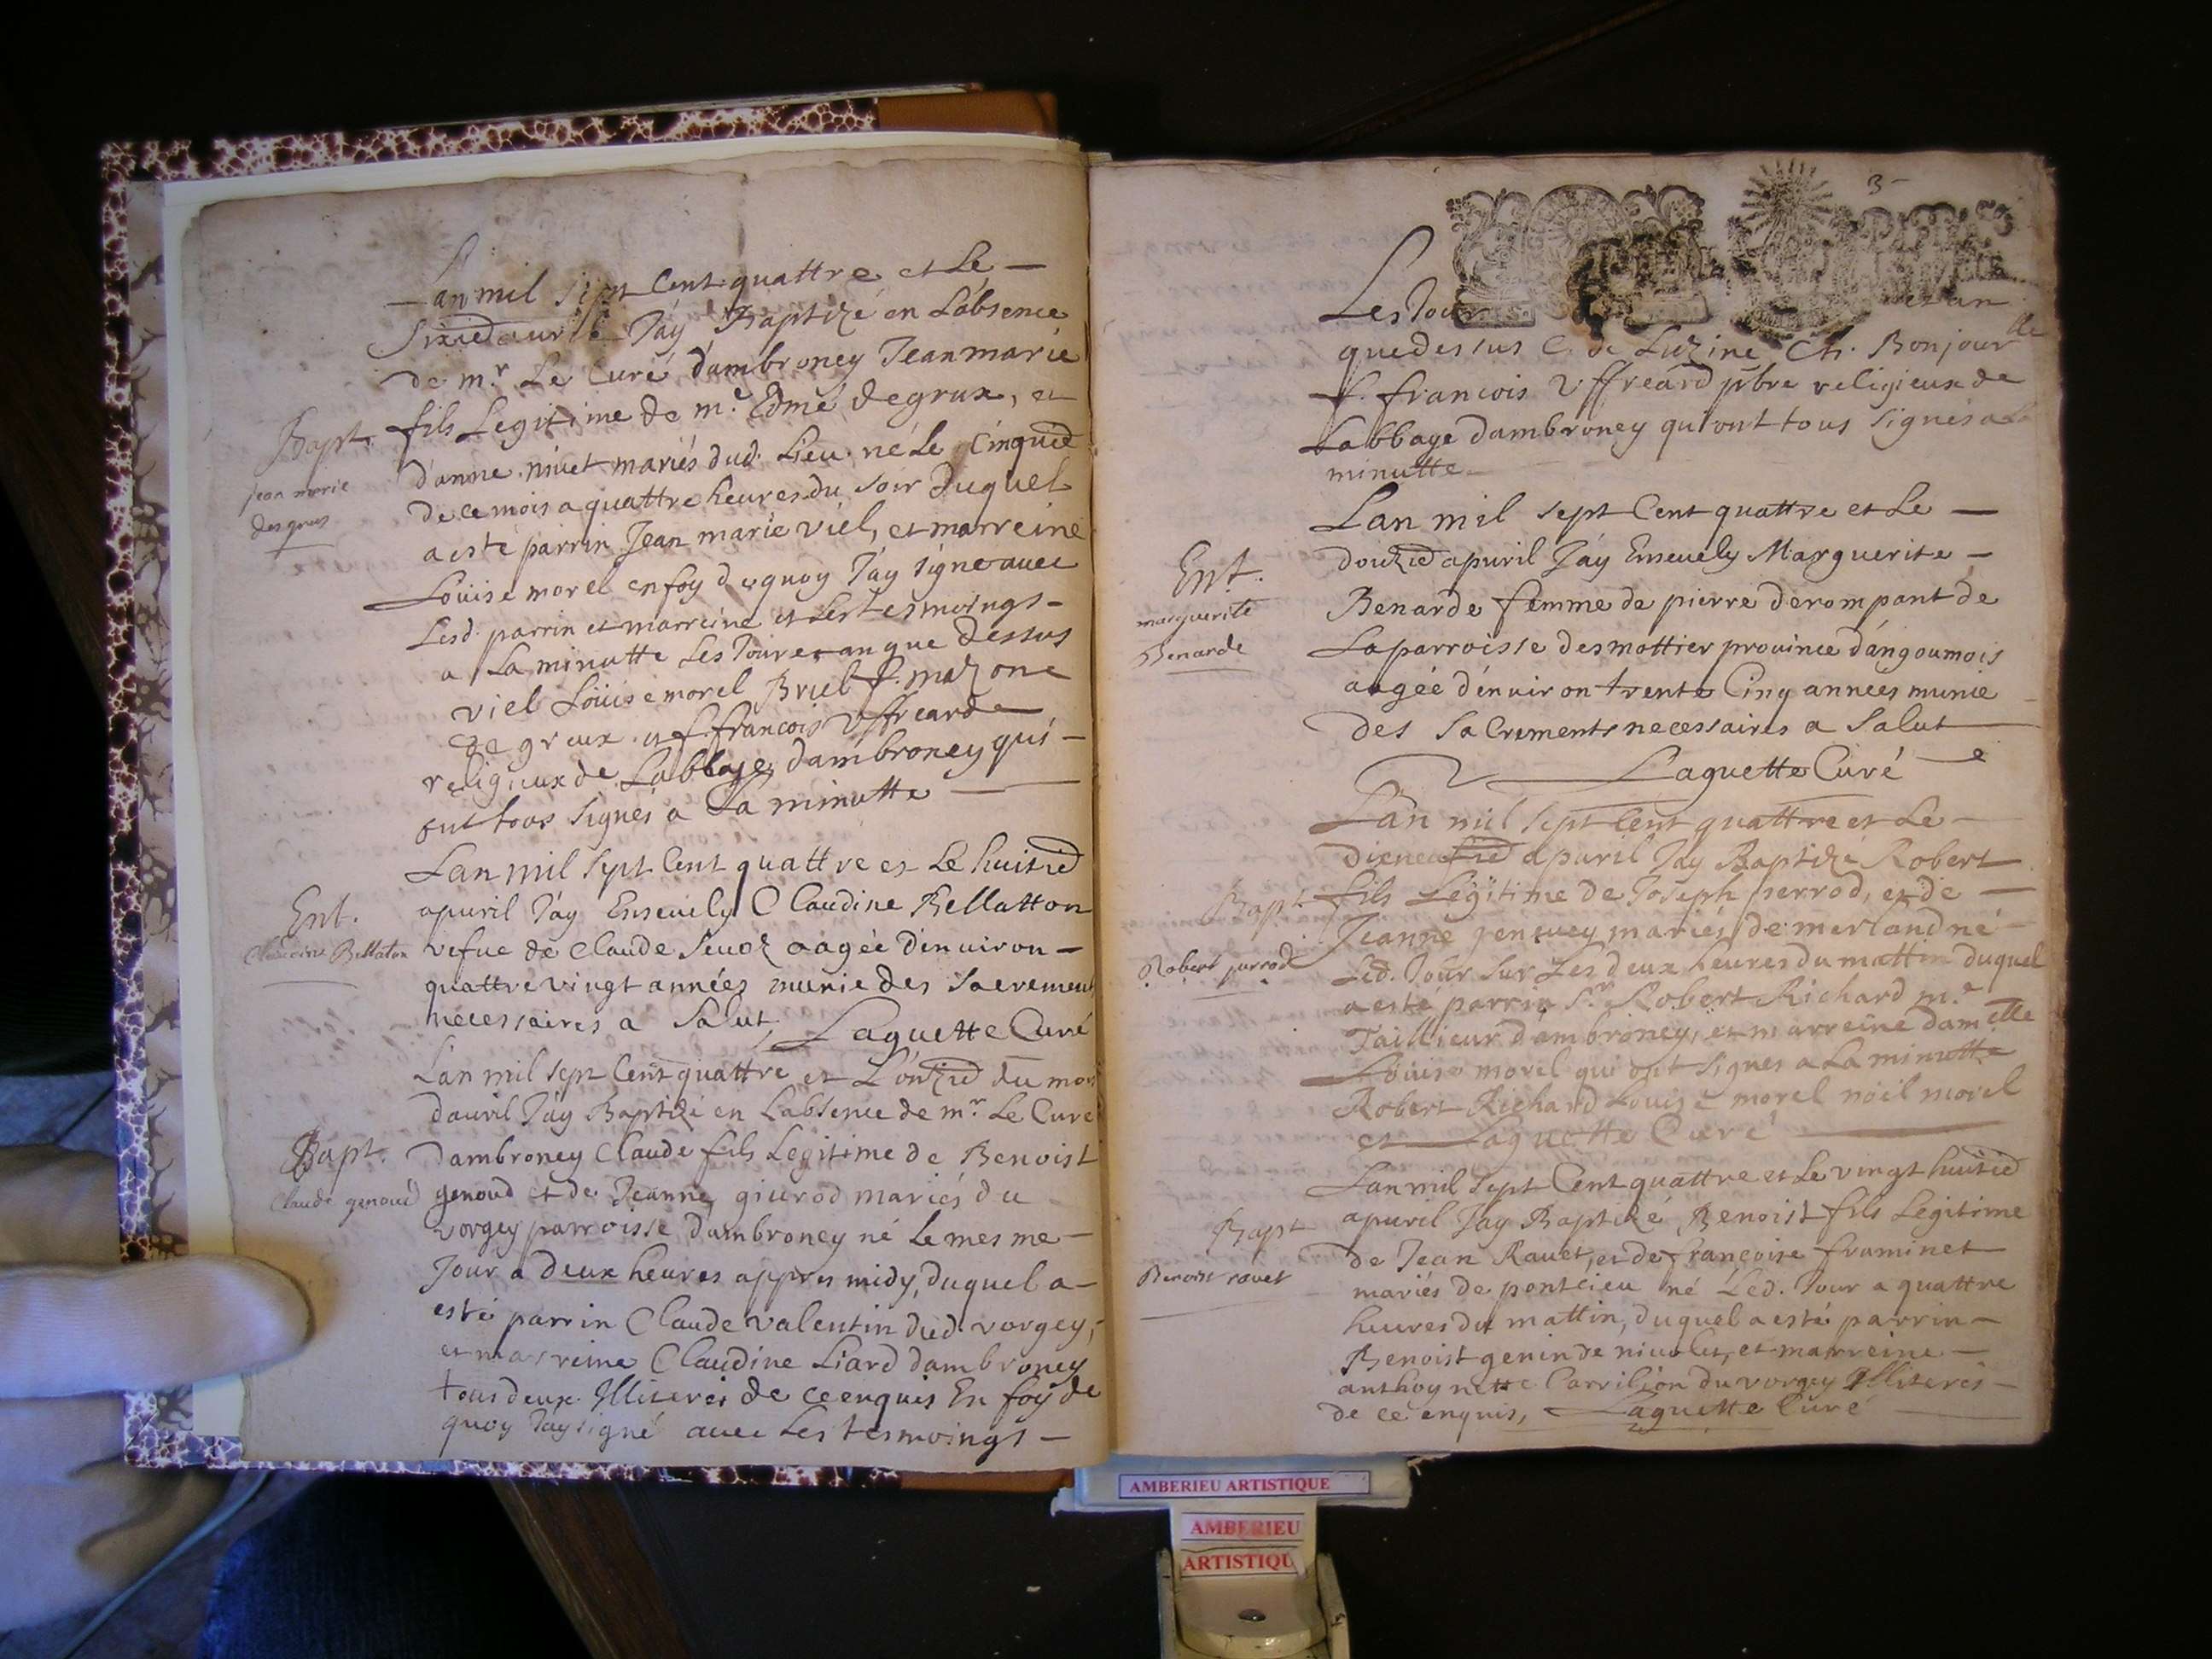 Lan mil sept Cent quattre et Le
Sixied auril Jáy Baptizé en Labsence
de mr. Le Curé dambroney Jean marie
fils Legitime de me. Edmé degrux, et
Bapt.
jean marie
des grus
danne nivet mariés dud. Lieu né Le Cinquied
de ce mois a quattre heures du soir Duquel
a esté parrin Jean marie viel, et marreine
Loüise morel en foy de quoy Jáy signé auec
Lesd. parrin et marreine et Les tesmoings
a La minutte Les Jour et an que dessus
viel Loüise morel Bruel f. mazone
degreux et f. francois Uffreard
religieux de Labbaye dambroney qui
ont tous signés a La minutte
Lan mil sept Cent quattre et Le huitied
Ent.
Claudine Bellaton
apuril Jáy Enseuely Claudine Bellatton
vefue de Claude Seuoz aagée denuiron
quattre vingt années munie des Sacrement
necessaires a Salut, Laguette Curé
Lan mil sept Cent quattre et Lonzied du mois
dauril Jáy Baptizé en Labsence de mr. Le Cure
Bapt.
Claude genoud
dambroney Claude fils Legitime de Benoist
genoud et de Jeanne giurod mariés du
vorgey parroisse dambroney né Le mesme
Jour a deux heures appres midy, duquel a
esté parrin Claude valentin dud. vorgey,
et marreine Claudine Liard dambroney
tous deux Illiterés de ce enquis En foy de
quoy Jáy signé auec Les tesmoings
3
Les Jour et an
que dessus C. de Luzine Ch. Bonjour
f. francois Uffreard pbre religieux de
Labbaye dambroney qui ont tous signés a La
minutte
Lan mil sept Cent quattre et Le
Ent.
marguerite
Benarde
douzied apuril Jáy Enseuely Marguerite
Benarde femme de pierre derompant de
La parroisse desmottier prouince dángoumois
aagée dénuiron trente Cinq années munie
des Sacrements necessaires a Salut
Laguette Curé
Lan mil sept Cent quattre et Le
dixneufied apuril Jáy Baptizé Robert
Bapt.
Robert perrod
fils Legitime de Joseph perrod, et de
Jeanne jenguey mariés de merland né
Led. Jour sur Les deux heures du mattin duquel
a esté parrin Sr. Robert Richard me.
Taillieur dambroney, et marreine damelle
Loüise morel qui ont signés a La minutte
Robert Richard Louise morel noïl morel
et Laguette Curé
Lan mil sept Cent quattre et Le vingt huitied
Bapt
Benoist rauet
apuril Jay Baptizé Benoist fils Legitime
de Jean Rauet, et de francoise fruminet
mariés de pontcieu né Led. Jour a quattre
heures du mattin, duquel a esté parrin
Benoist genin de nicolet, et marreine
anthoynette Carrilion du vorgey Illiterés
de ce enquis, Laguette Curé
AMBERIEU ARTISTIQUE
AMBERIEU
ARTISTIQU